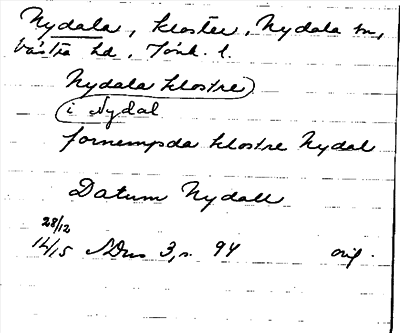 Nydala, kloster, Nydala sn,
Västra hd, Jönk. l.
Nydala klostre
i Nydal
fornempda klostre Nydal
Datum Nydall
28/12
1415 SDns 3, s. 94 orig.